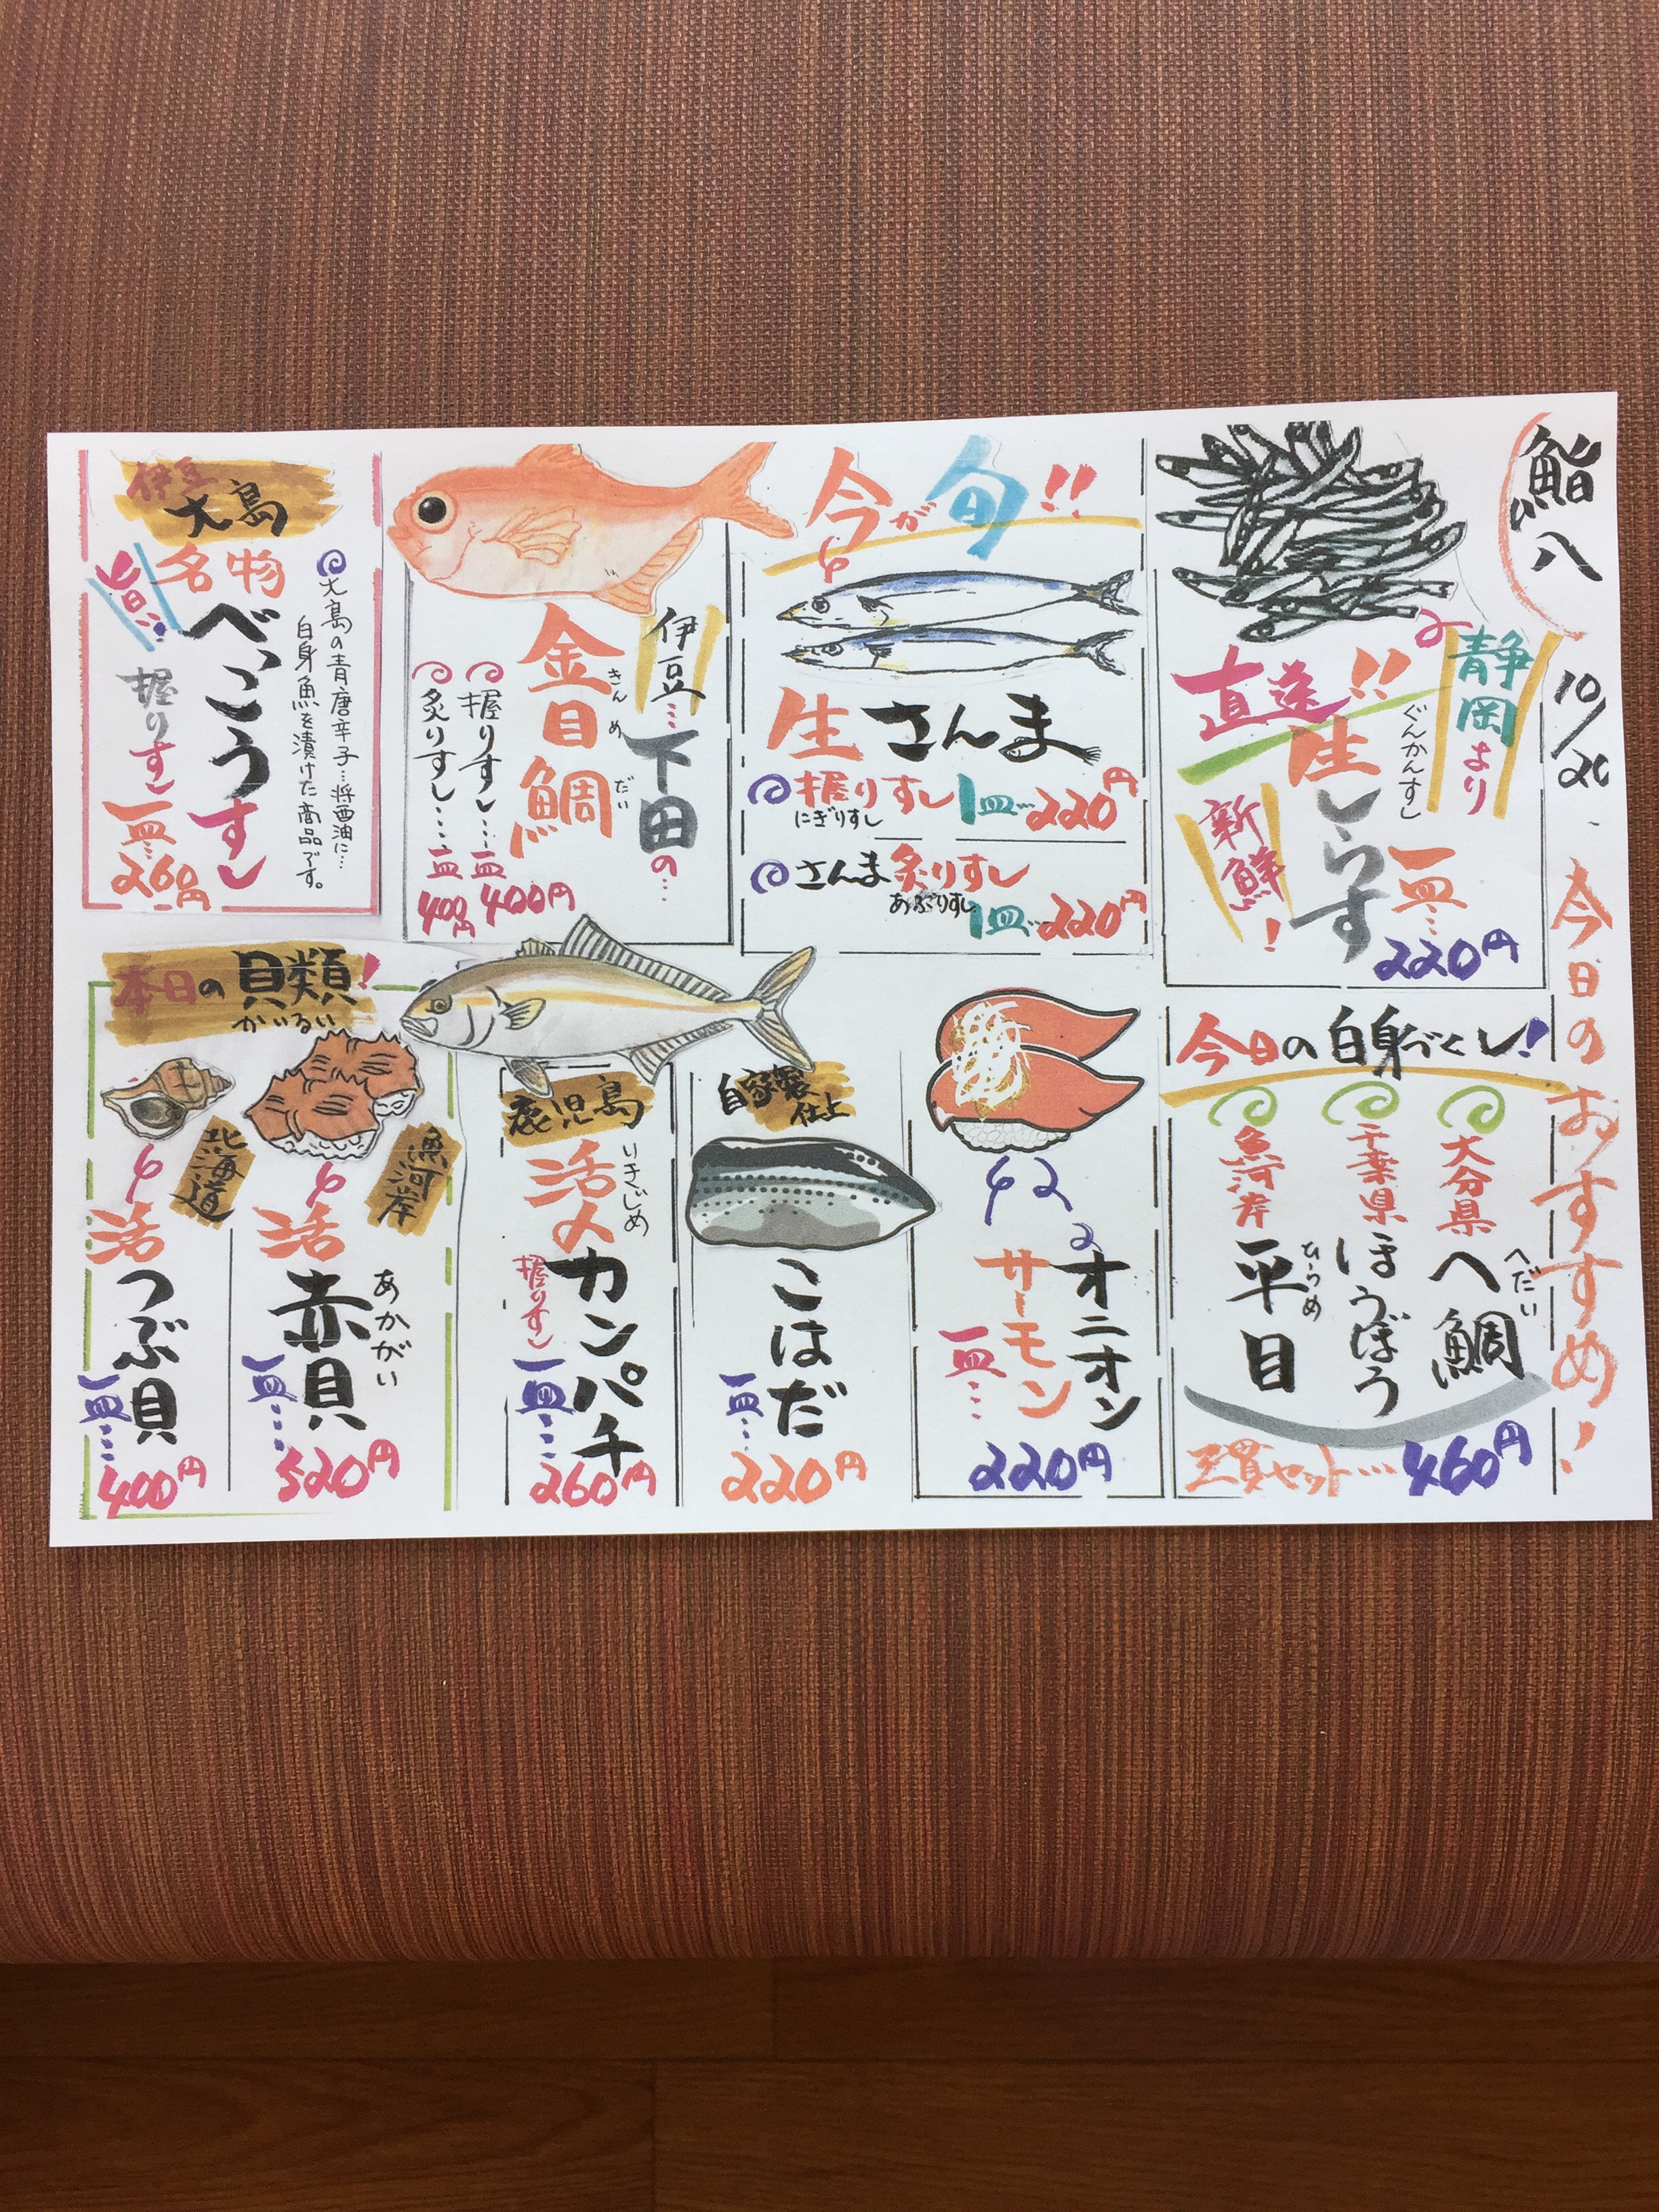 鮨八
10/20
今日のおすすめ!
静岡より
直送!!
生しらす
ぐんかんずし
新鮮!
一皿…
220円
今が旬!!
生さんま
握りずし 1皿…220円
にぎりすし
さんま炙りずし
あぶりすし
1皿…220円
伊豆…下田の…
金目鯛
きんめだい
握りずし…一皿400円
炙りずし…一皿400円
伊豆大島
名物
べっこうずし
旨い
大島の青唐辛子…将油に…
白身魚を漬けた商品です。
握りずし
一皿…
260円
今日の白身づくし!
大分県
へ鯛
へだい
千葉県
ほうぼう
魚河岸
平目
ひらめ
三貫セット…460円
オニオン
サーモン
一皿…
220円
自家製仕上
こはだ
一皿…
220円
鹿児島
活〆
いきじめ
カンパチ
握りずし
一皿…
260円
本日の貝類!
かいるい
魚河岸
活赤貝
あかがい
一皿…
520円
北海道
活つぶ貝
一皿…
400円